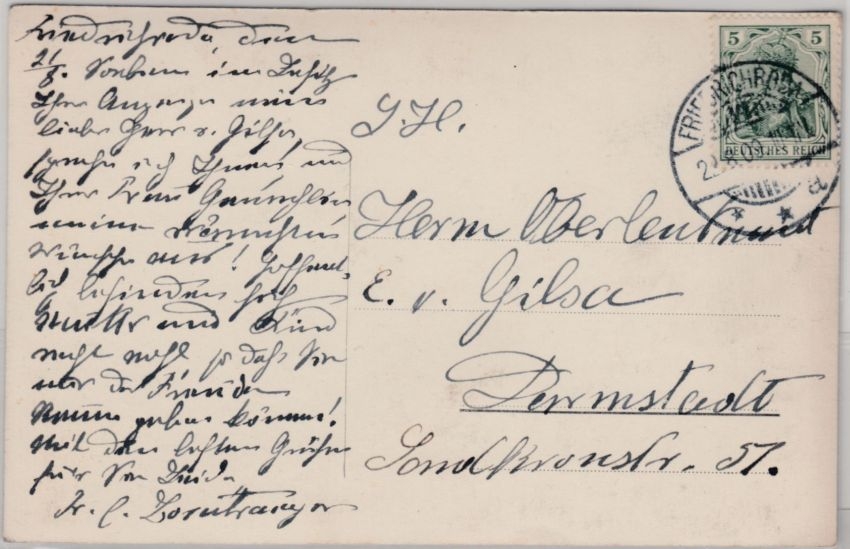 Friedrichroda den
21/8. Soeben im Besitz
Ihrer Anzeige mein
lieber Herr v. Gilsa,
spreche ich Ihnen und
Ihrer Frau Gemahlin
meine
wünsche aus! Hoffent-
lich befinden sich
Mutter und Kind
recht wohl so daß Sie
nur der Freude
Raum geben können!
Mit den besten Grüßen
für Sie Beide
Fr. C.
S. H.
Herrn Oberleutnant
E. v. Gilsa
Darmstadt
Landkronstr. 57.
5 5
DEUTSCHES REICH
FRIEDRICHRODA